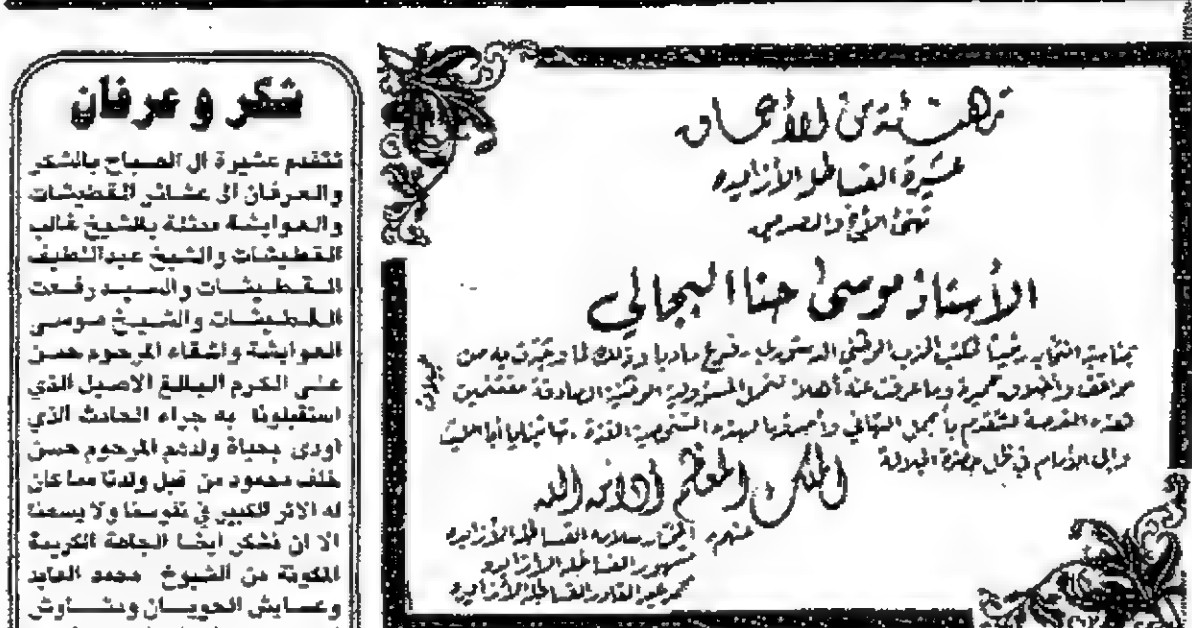 تهنئة من الأعماق
عشيرة القساطلة الأزايدة
تهنئ الأخ والصديق
الأستاذ موسى حنا البجالي
بمناسبة انتخابه رئيساً لمكتب الحزب الوطني الدستوري فرع مادبا وذلك لما وجدت فيه من
مواقف وأخلاق حميدة وما عرفت عنه أهلاً لتحمل المسؤولية الوطنية الصادقة مغتنمين
هذه الفرصة لنتقدم بأجمل التهاني وأصدقها لهذه الشخصية الفذة تهانينا
والى الأمام في ظل حضرة صاحب الجلالة
الملك المعظم أدامه الله
عنهم المختار سلامه القساطلة الأزايده
القساطلة الأزايده
عبد القادر القساطلة الأزايده
شكر و عرفان
تتقدم عشيرة ال الصباح بالشكر
والعرفان الى عشائر القطيشات
والعوايشة ممثلة بالشيخ غالب
القطيشات والشيخ عبداللطيف
القطيشات والسيد رفعت
القطيشات والشيخ موسى
العوايشة واشقاء المرحوم حسن
على الكرم البالغ الاصيل الذي
استقبلونا به جراء الحادث الذي
اودى بحياة ولدهم المرحوم حسن
خلف محمود من قبل ولدنا مما كان
له الاثر الكبير في نفوسنا ولا يسعنا
الا ان نشكر ايضا الجاهة الكريمة
المكونة من الشيوخ محمد العابد
وعايش الحويان وشاوش